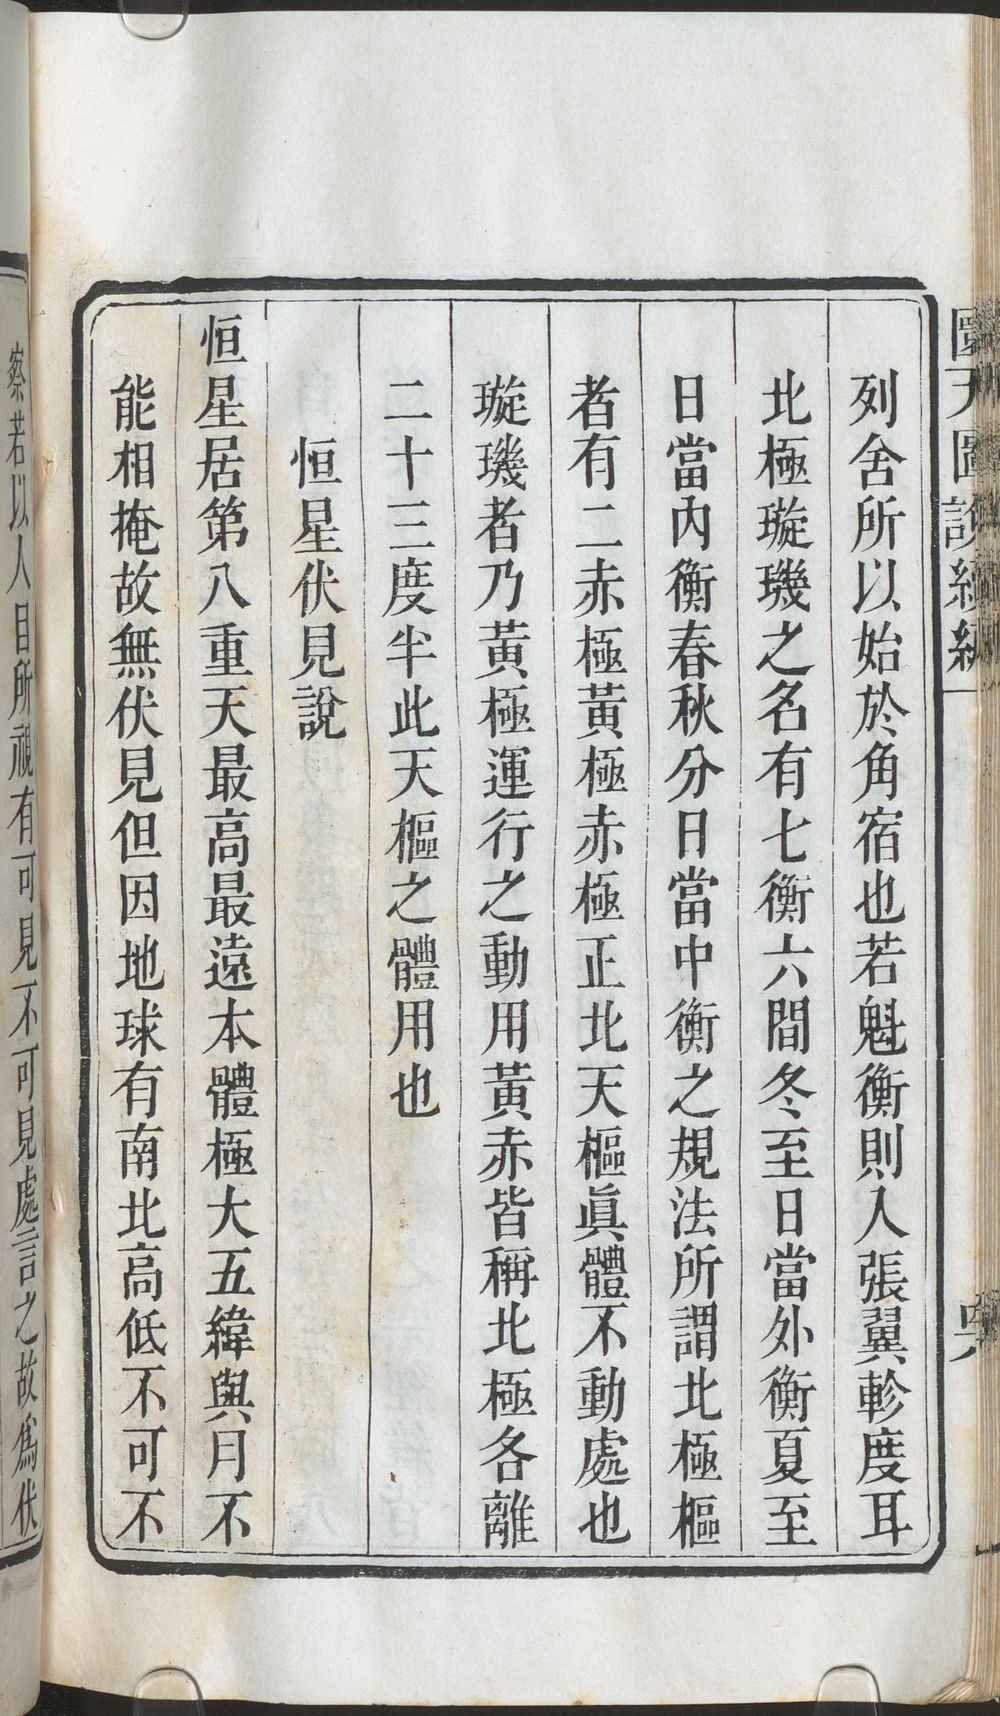 圜天圖說續編
列舍所以始於角宿也若魁衡則入張翼軫度耳
北極璇璣之名有七衡六間冬至日當外衡夏至
日當內衡春秋分日當中衡之規法所謂北極樞
者有二赤極黃極赤極正北天樞眞體不動處也
璇璣者乃黃極運行之動用黃赤皆稱北極各離
二十三度半此天樞之體用也
恒星伏見說
恒星居第八重天最高最遠本體極大五緯與月不
能相掩故無伏見但因地球有南北高低不可不
察若以人目所視有可見不可見處言之故爲伏